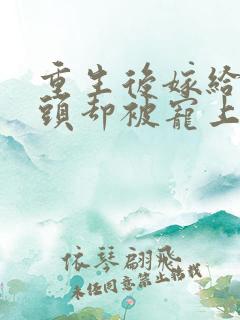 重生後嫁給
頭却被寵上
依琴翩飛
未经同意禁止转载